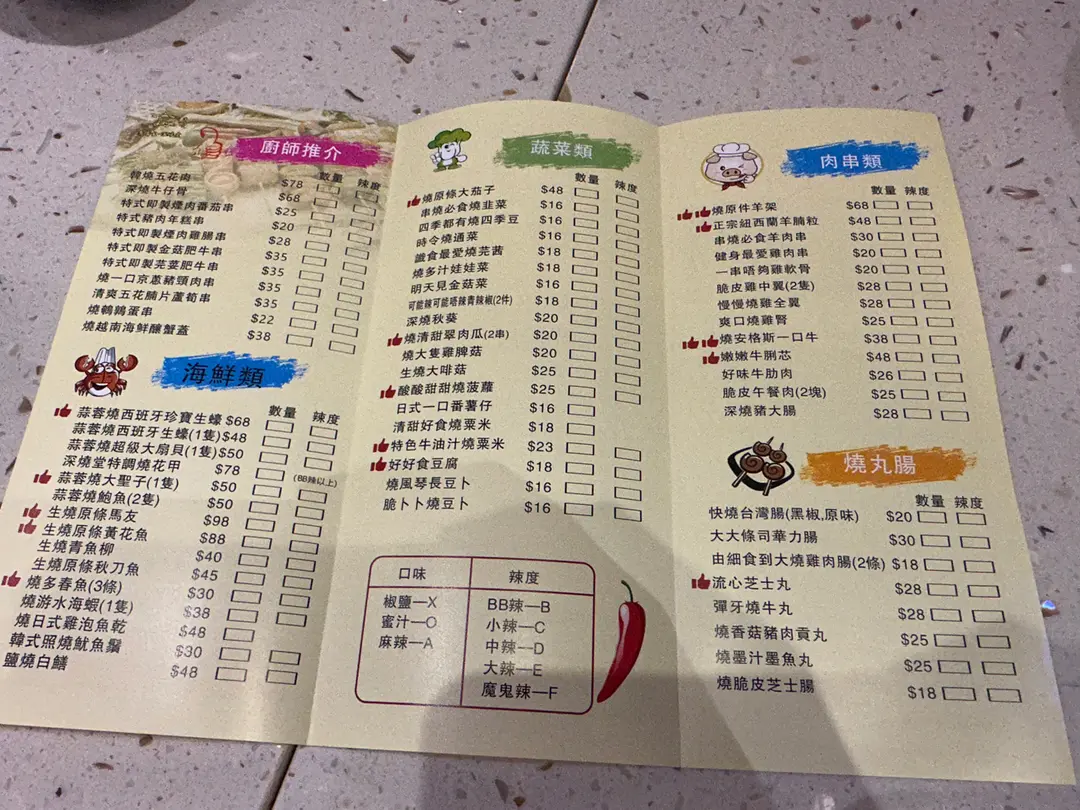 廚師推介 數量 辣度
韓燒五花肉 $78
深燒牛仔骨 $68
特式即製煙肉番茄串 $25
特式豬肉年糕串 $20
特式即製煙肉雞腸串 $28
特式即製金菇肥牛串 $35
特式即製芫荽肥牛串 $35
燒一口京蔥豬頸肉串 $35
清爽五花腩片蘆筍串 $35
燒鵪鶉蛋串 $22
燒越南海鮮釀蟹蓋 $38
海鮮類 數量 辣度
蒜蓉燒西班牙珍寶生蠔 $68
蒜蓉燒西班牙生蠔(1隻) $48
蒜蓉燒超級大扇貝(1隻) $50
深燒堂特調燒花甲 $78 (BB辣以上)
蒜蓉燒大聖子(1隻) $50
蒜蓉燒鮑魚(2隻) $50
生燒原條馬友 $98
生燒原條黃花魚 $88
生燒青魚柳 $40
生燒原條秋刀魚 $45
燒多春魚(3條) $30
燒游水海蝦(1隻) $38
燒日式雞泡魚乾 $48
韓式照燒魷魚鬚 $30
鹽燒白鱔 $48
蔬菜類 數量 辣度
燒原條大茄子 $48
串燒必食燒韭菜 $16
四季都有燒四季豆 $16
時令燒通菜 $16
識食最愛燒芫茜 $18
燒多汁娃娃菜 $18
明天見金菇菜 $18
可能辣可能唔辣青辣椒(2件) $18
深燒秋葵 $20
燒清甜翠肉瓜(2串) $20
燒大隻雞脾菇 $20
生燒大啡菇 $25
酸酸甜甜燒菠蘿 $25
日式一口番薯仔 $16
清甜好食燒粟米 $18
特色牛油汁燒粟米 $23
好好食豆腐 $18
燒風琴長豆卜 $16
脆卜卜燒豆卜 $16
口味 辣度
椒鹽—X BB辣—B
蜜汁—O 小辣—C
麻辣—A 中辣—D
大辣—E
魔鬼辣—F
肉串類 數量 辣度
燒原件羊架 $68
正宗紐西蘭羊腩粒 $48
串燒必食羊肉串 $30
健身最愛雞肉串 $20
一串唔夠雞軟骨 $20
脆皮雞中翼(2隻) $28
慢慢燒雞全翼 $28
爽口燒雞腎 $25
燒安格斯一口牛 $38
嫩嫩牛脷芯 $48
好味牛肋肉 $26
脆皮午餐肉(2塊) $25
深燒豬大腸 $28
燒丸腸 數量 辣度
快燒台灣腸(黑椒,原味) $20
大大條司華力腸 $30
由細食到大燒雞肉腸(2條) $18
流心芝士丸 $28
彈牙燒牛丸 $28
燒香菇豬肉貢丸 $25
燒墨汁墨魚丸 $25
燒脆皮芝士腸 $18